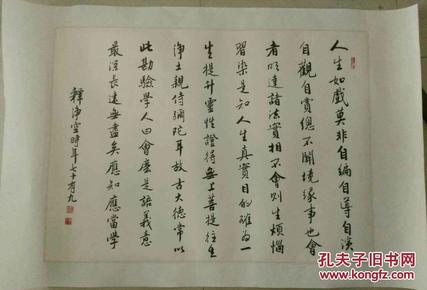 人生如戲莫非自編自導自演
自觀自賞總不關境緣事也會
者明達諸法實相不會則生煩惱
習染是知人生真實目的確為一
生提升靈性證得無上菩提往生
淨土親侍彌陀耳故古大德常以
此勘驗學人曰會麼是語義意
最深長遠無盡矣應知應當學
釋淨空時年七十有九
孔夫子旧书网
www.kongfz.com